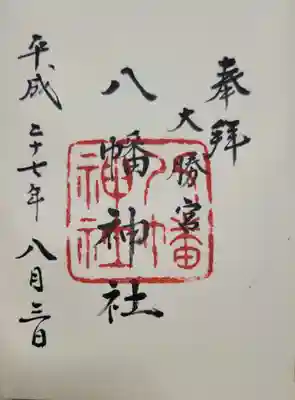 奉拝
大勝宮
八幡神社
八幡神社
平成二十七年八月三日